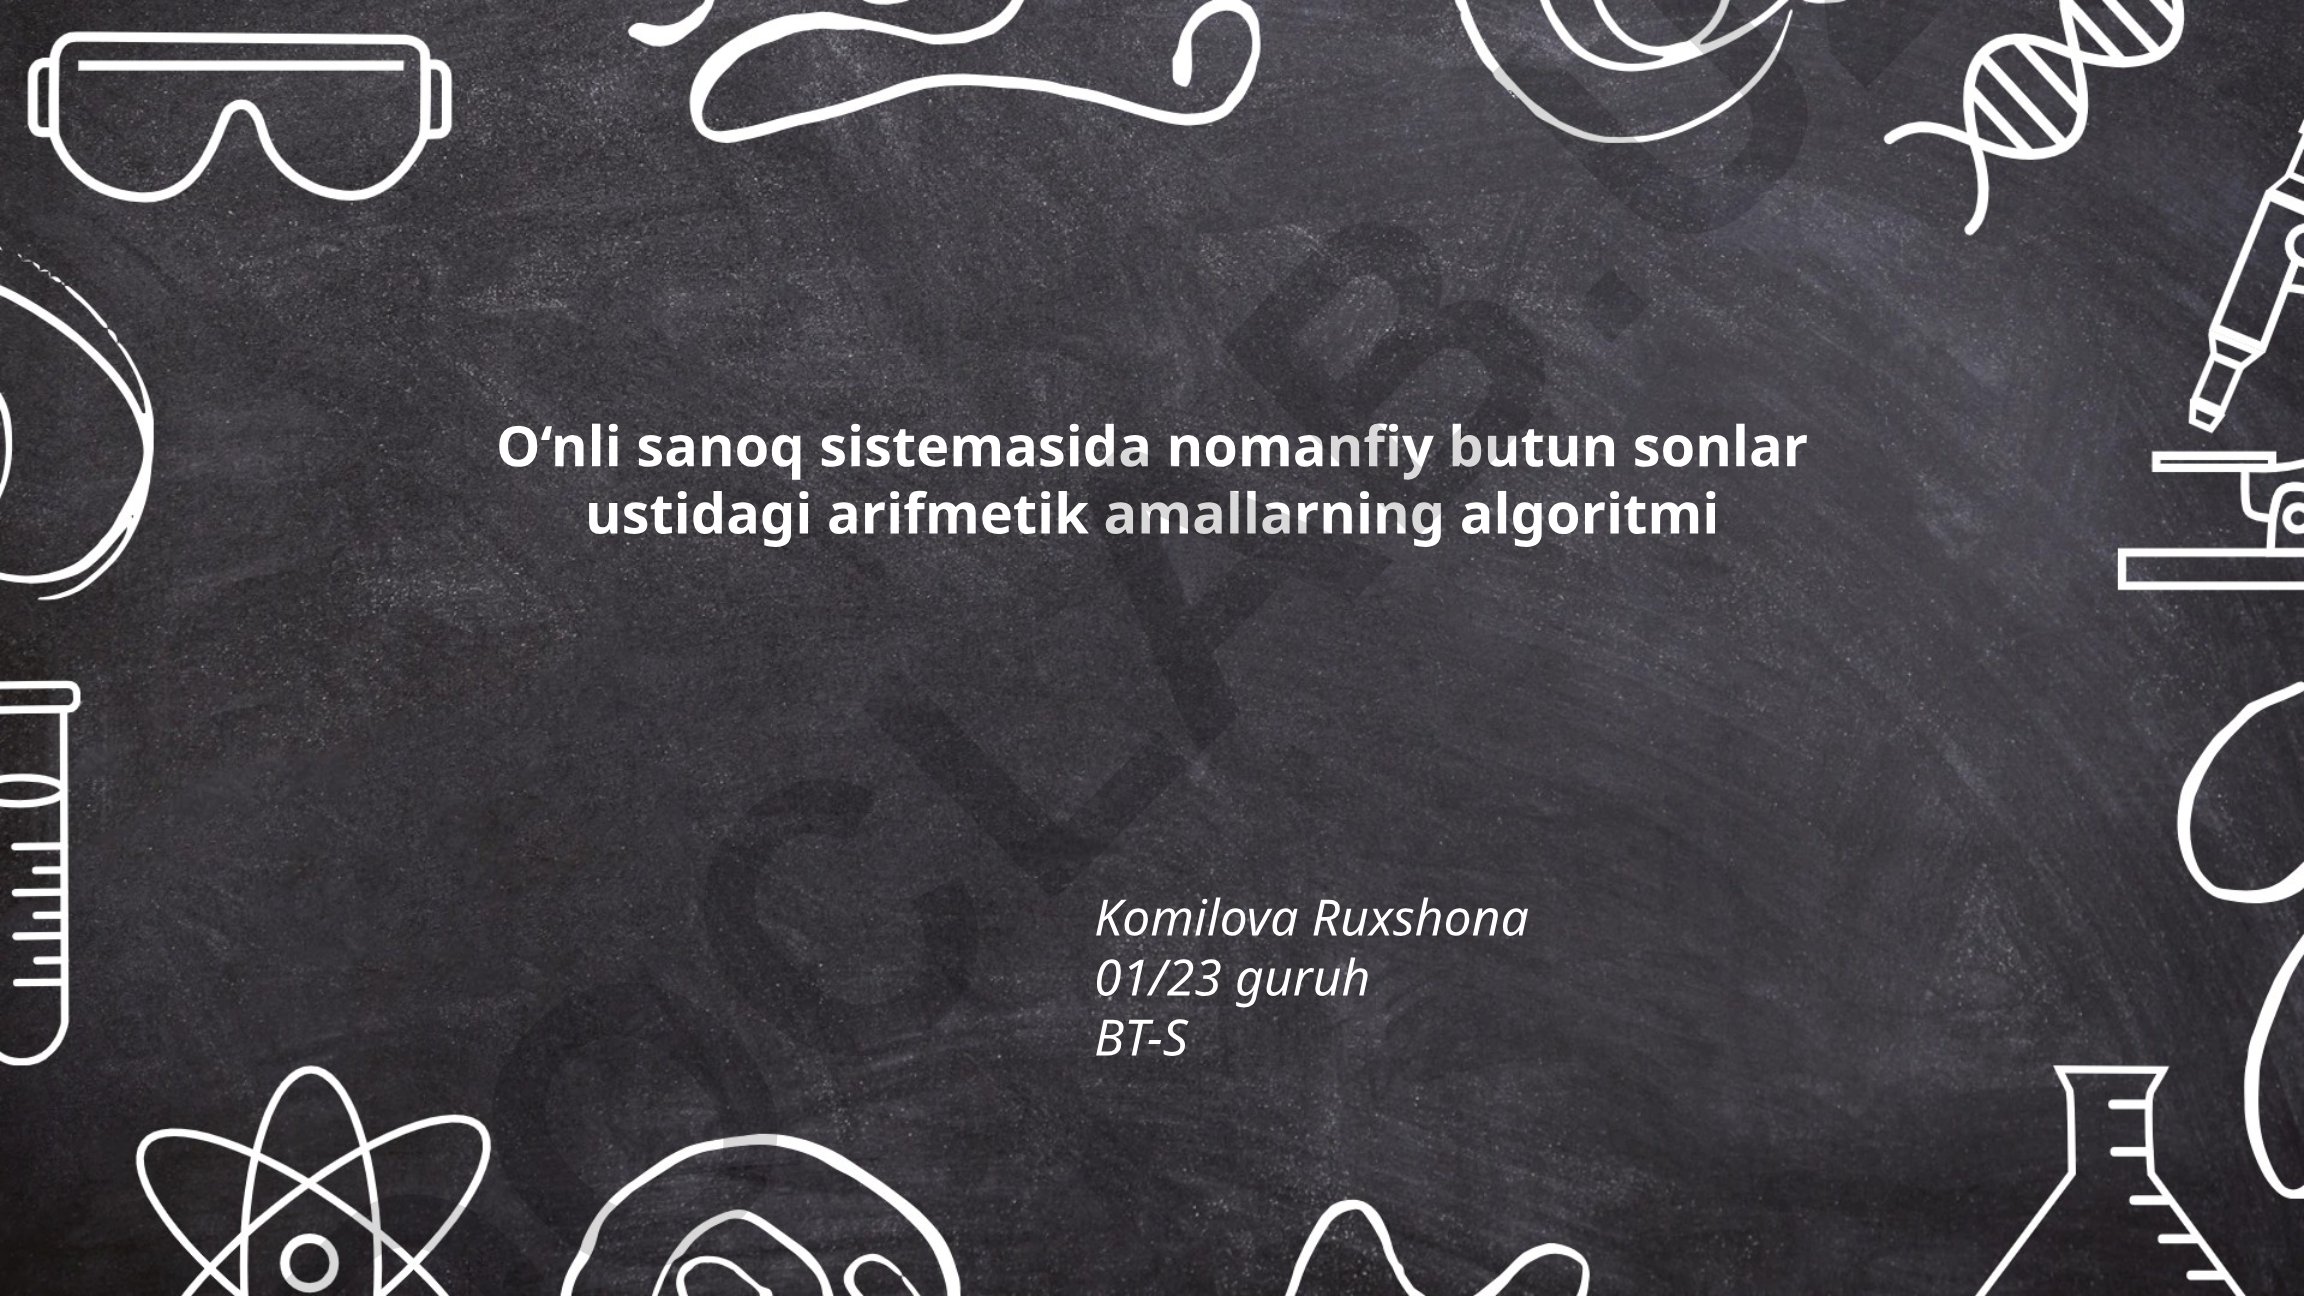 O‘nli sanoq sistemasida nomanfiy butun sonlar
ustidagi arifmetik amallarning algoritmi
Komilova Ruxshona
01/23 guruh
BT-S